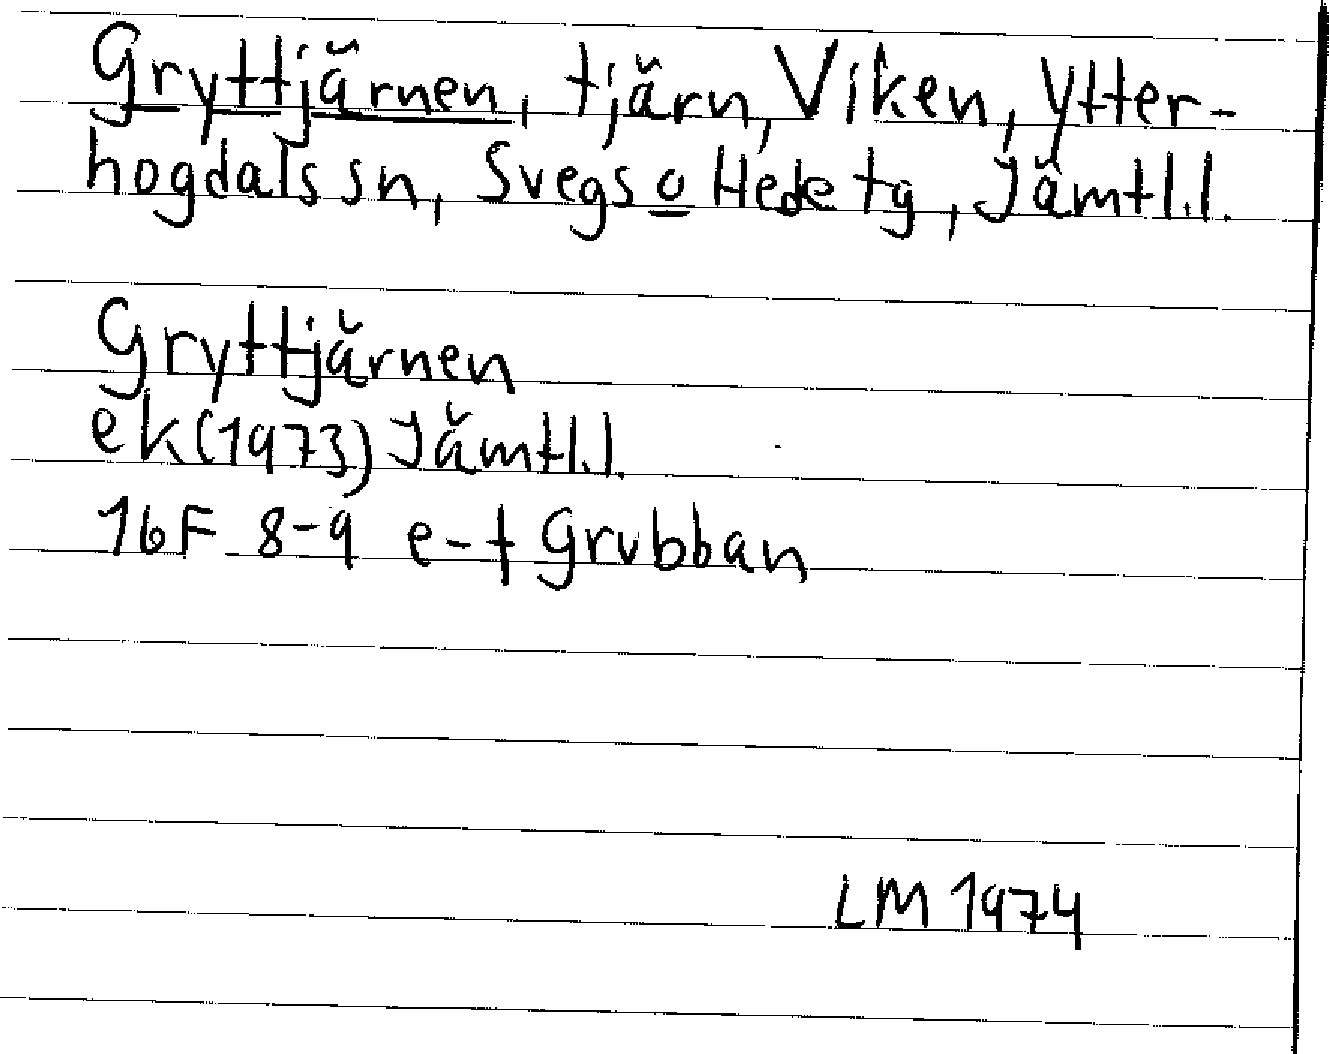 Gryttjärnen, tjärn, Viken, Ytter-
hogdals sn, Svegs o Hede tg, Jämtl.l.
Gryttjärnen
ek(1973) Jämtl.l.
16F 8-9 e-f Grubban
LM 1974